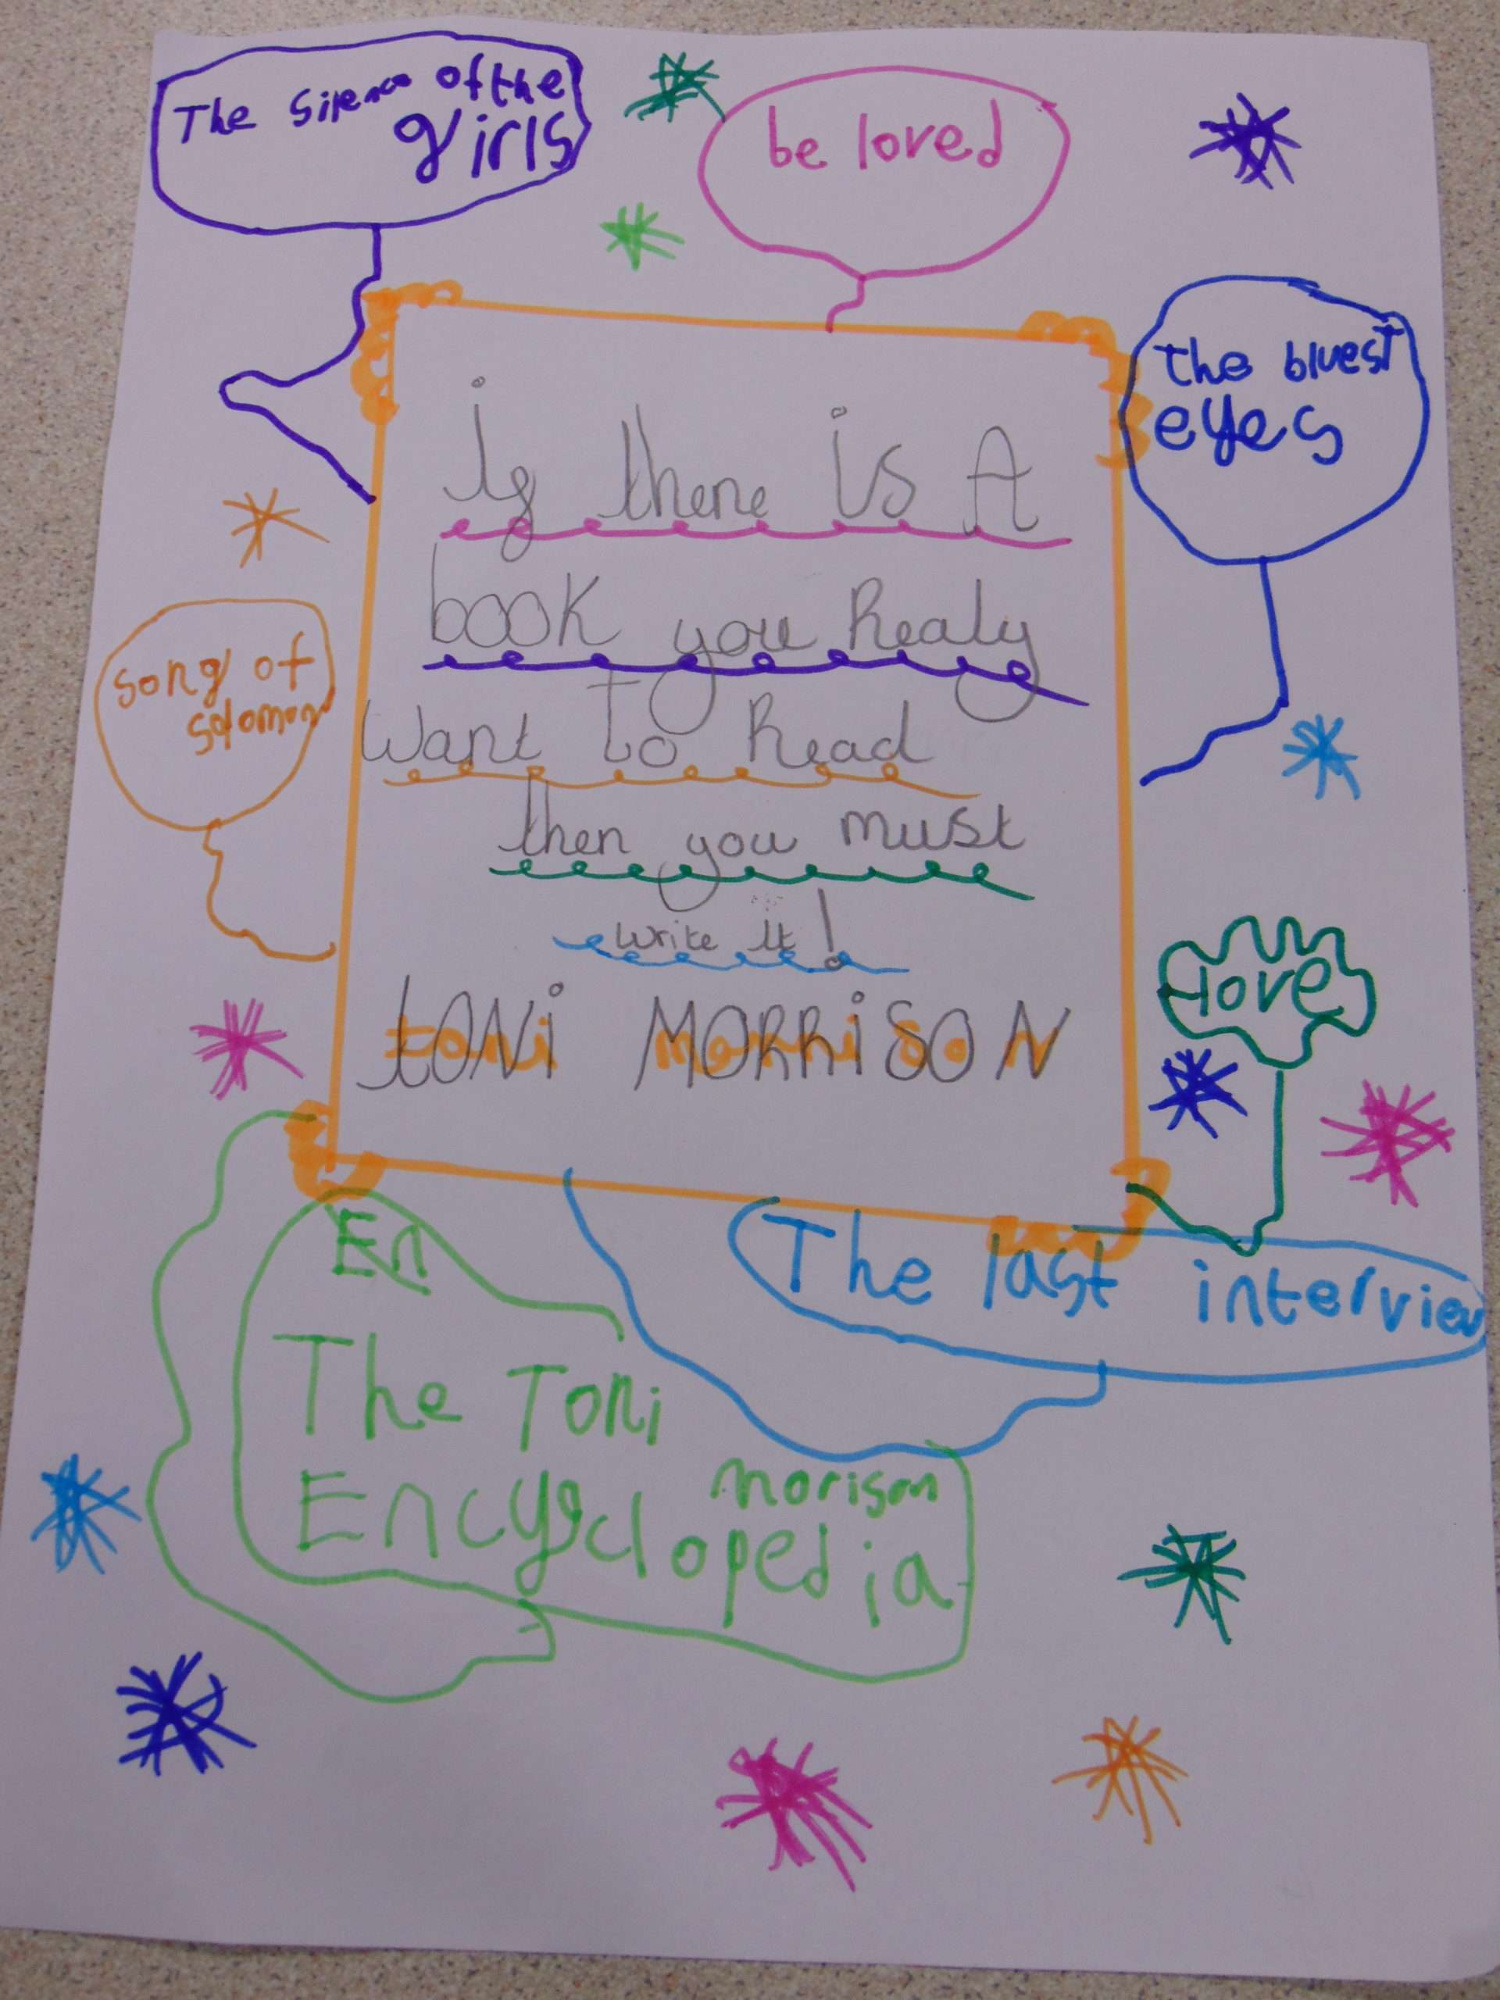 The Silence of the
girls
be loved
The bluest
eyes
if there is A
book you Realy
Want To Read
then you must
write it!
tONi MORRiSON
song of
solomon
love
The last interview
En
The Toni
morison
Encyclopedia